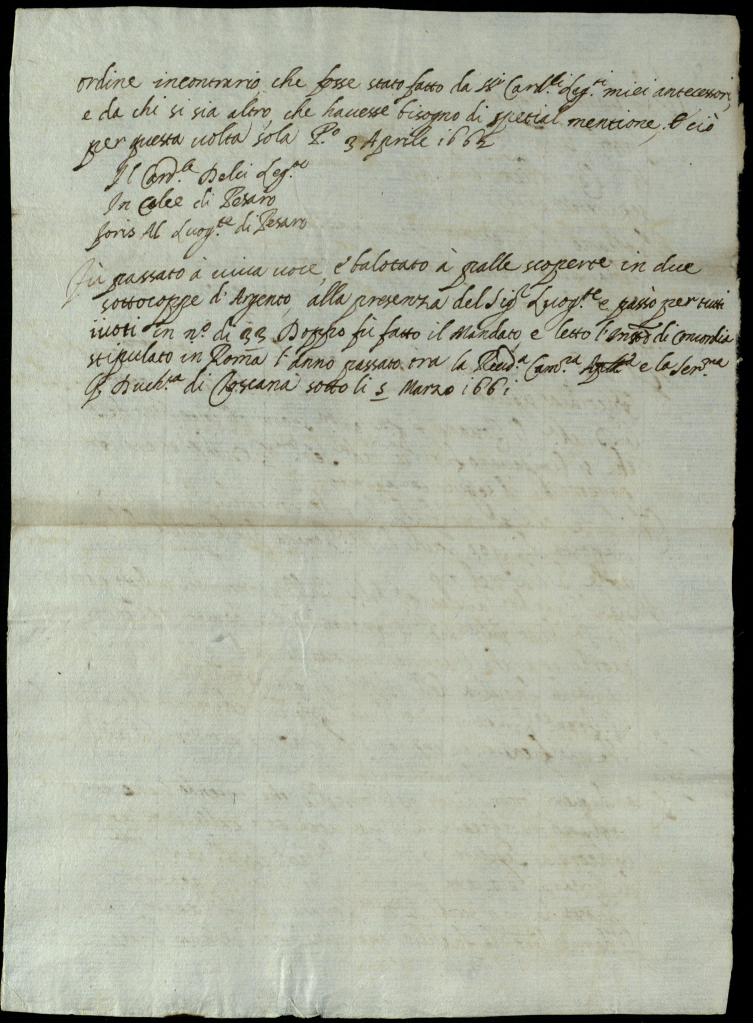 ordine incontrario, che fosse stato fatto da SSri Card.li Leg.ti miei antecessori,
e da chi si sia altro, che hauesse bisogno di spetial mentione, E ciò
per questa uolta sola P.o 3 Aprile 1662
Il Card.le Delci Leg.to
In Calce di Pesaro
foris Al Luog.te di Pesaro
Fù passato à uiua uoce, e balotato à palle scoperte in due
sottocoppe d'Argento, alla presenza del Sig.r Luog.te e passò per tutti
iuoti in n.o di 33 Doppo fù fatto il Mandato, e letto l'Instr.o di Concordia
stipulato in Roma l'anno passato tra la Reud.a Cam.ra Aplica e la Ser.ma
Duch.sa di Thoscana sotto li 5 Marzo 1661